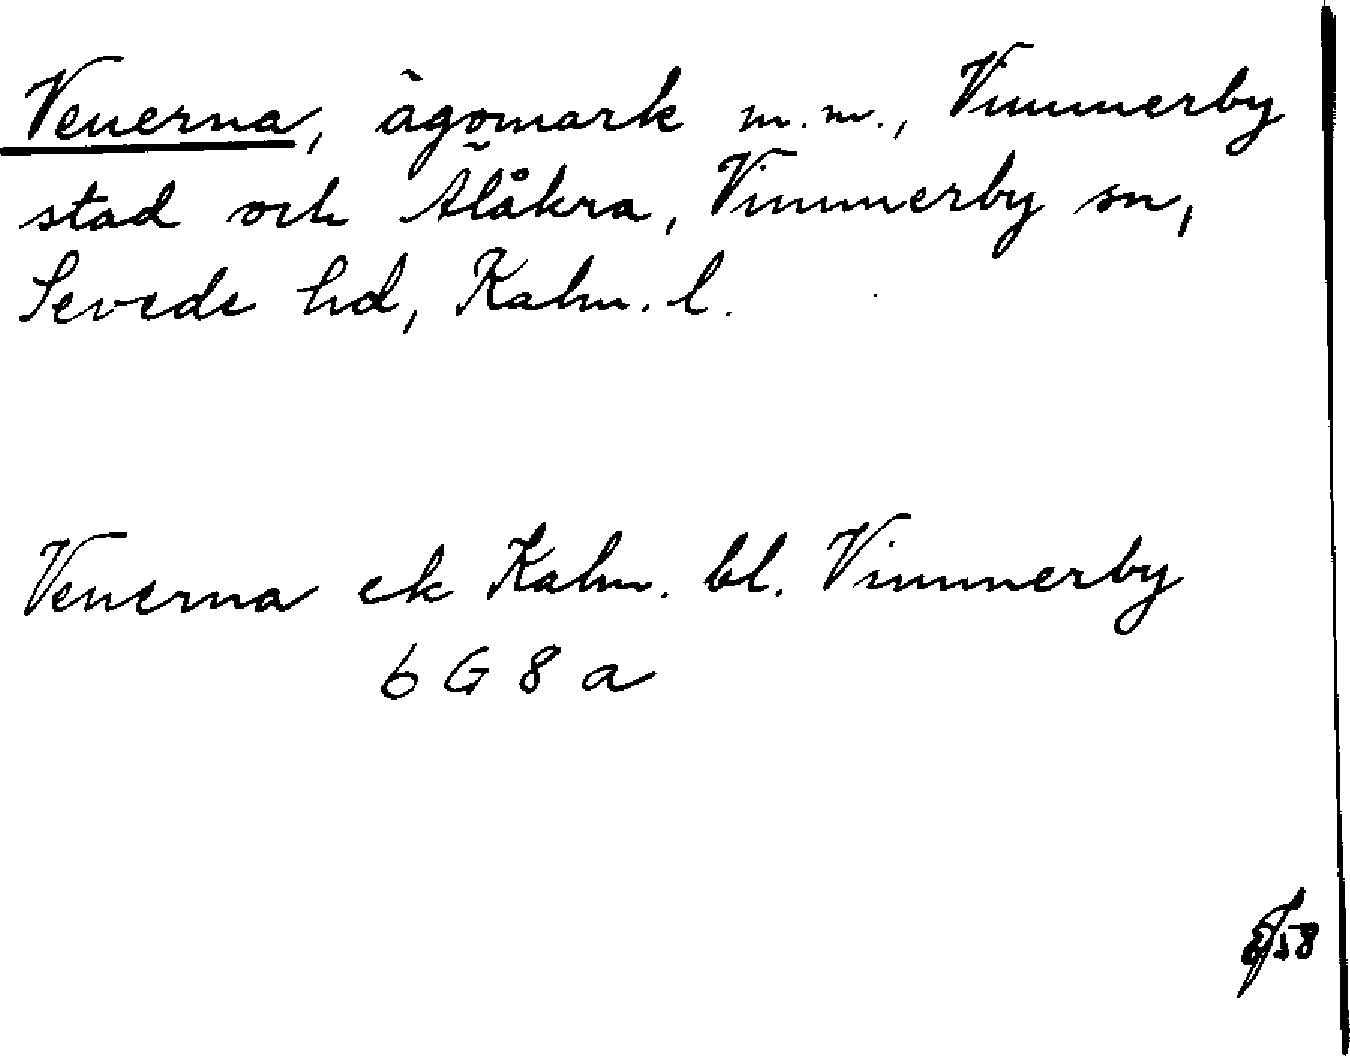 Venerna, ägomark m.m., Vimmerby
stad och Älåkra, Vimmerby sn,
Sevede hd, Kalm. l.
Venerna ek Kalm. bl. Vimmerby
6 G 8 a
58